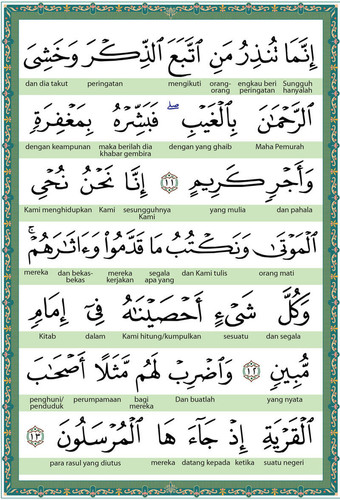 إِنَّمَا تُنذِرُ مَنِ ٱتَّبَعَ ٱلذِّكْرَ وَخَشِىَ
dan dia takut peringatan mengikuti orang-orang engkau beri peringatan Sungguh hanyalah
ٱلرَّحْمَٰنَ بِٱلْغَيْبِ ۖ فَبَشِّرْهُ بِمَغْفِرَةٍ
dengan keampunan maka berilah dia khabar gembira dengan yang ghaib Maha Pemurah
وَأَجْرٍ كَرِيمٍ ١١ إِنَّا نَحْنُ نُحْىِ
Kami menghidupkan Kami sesungguhnya Kami yang mulia dan pahala
ٱلْمَوْتَىٰ وَنَكْتُبُ مَا قَدَّمُوا۟ وَءَاثَٰرَهُمْ ۚ
mereka dan bekas-bekas mereka kerjakan segala apa yang dan Kami tulis orang mati
وَكُلَّ شَىْءٍ أَحْصَيْنَٰهُ فِىٓ إِمَامٍ
Kitab dalam Kami hitung/kumpulkan sesuatu dan segala
مُّبِينٍ ١٢ وَٱضْرِبْ لَهُم مَّثَلًا أَصْحَٰبَ
penghuni/penduduk perumpamaan bagi mereka Dan buatlah yang nyata
ٱلْقَرْيَةِ إِذْ جَآءَهَا ٱلْمُرْسَلُونَ ١٣
para rasul yang diutus mereka datang kepada ketika suatu negeri